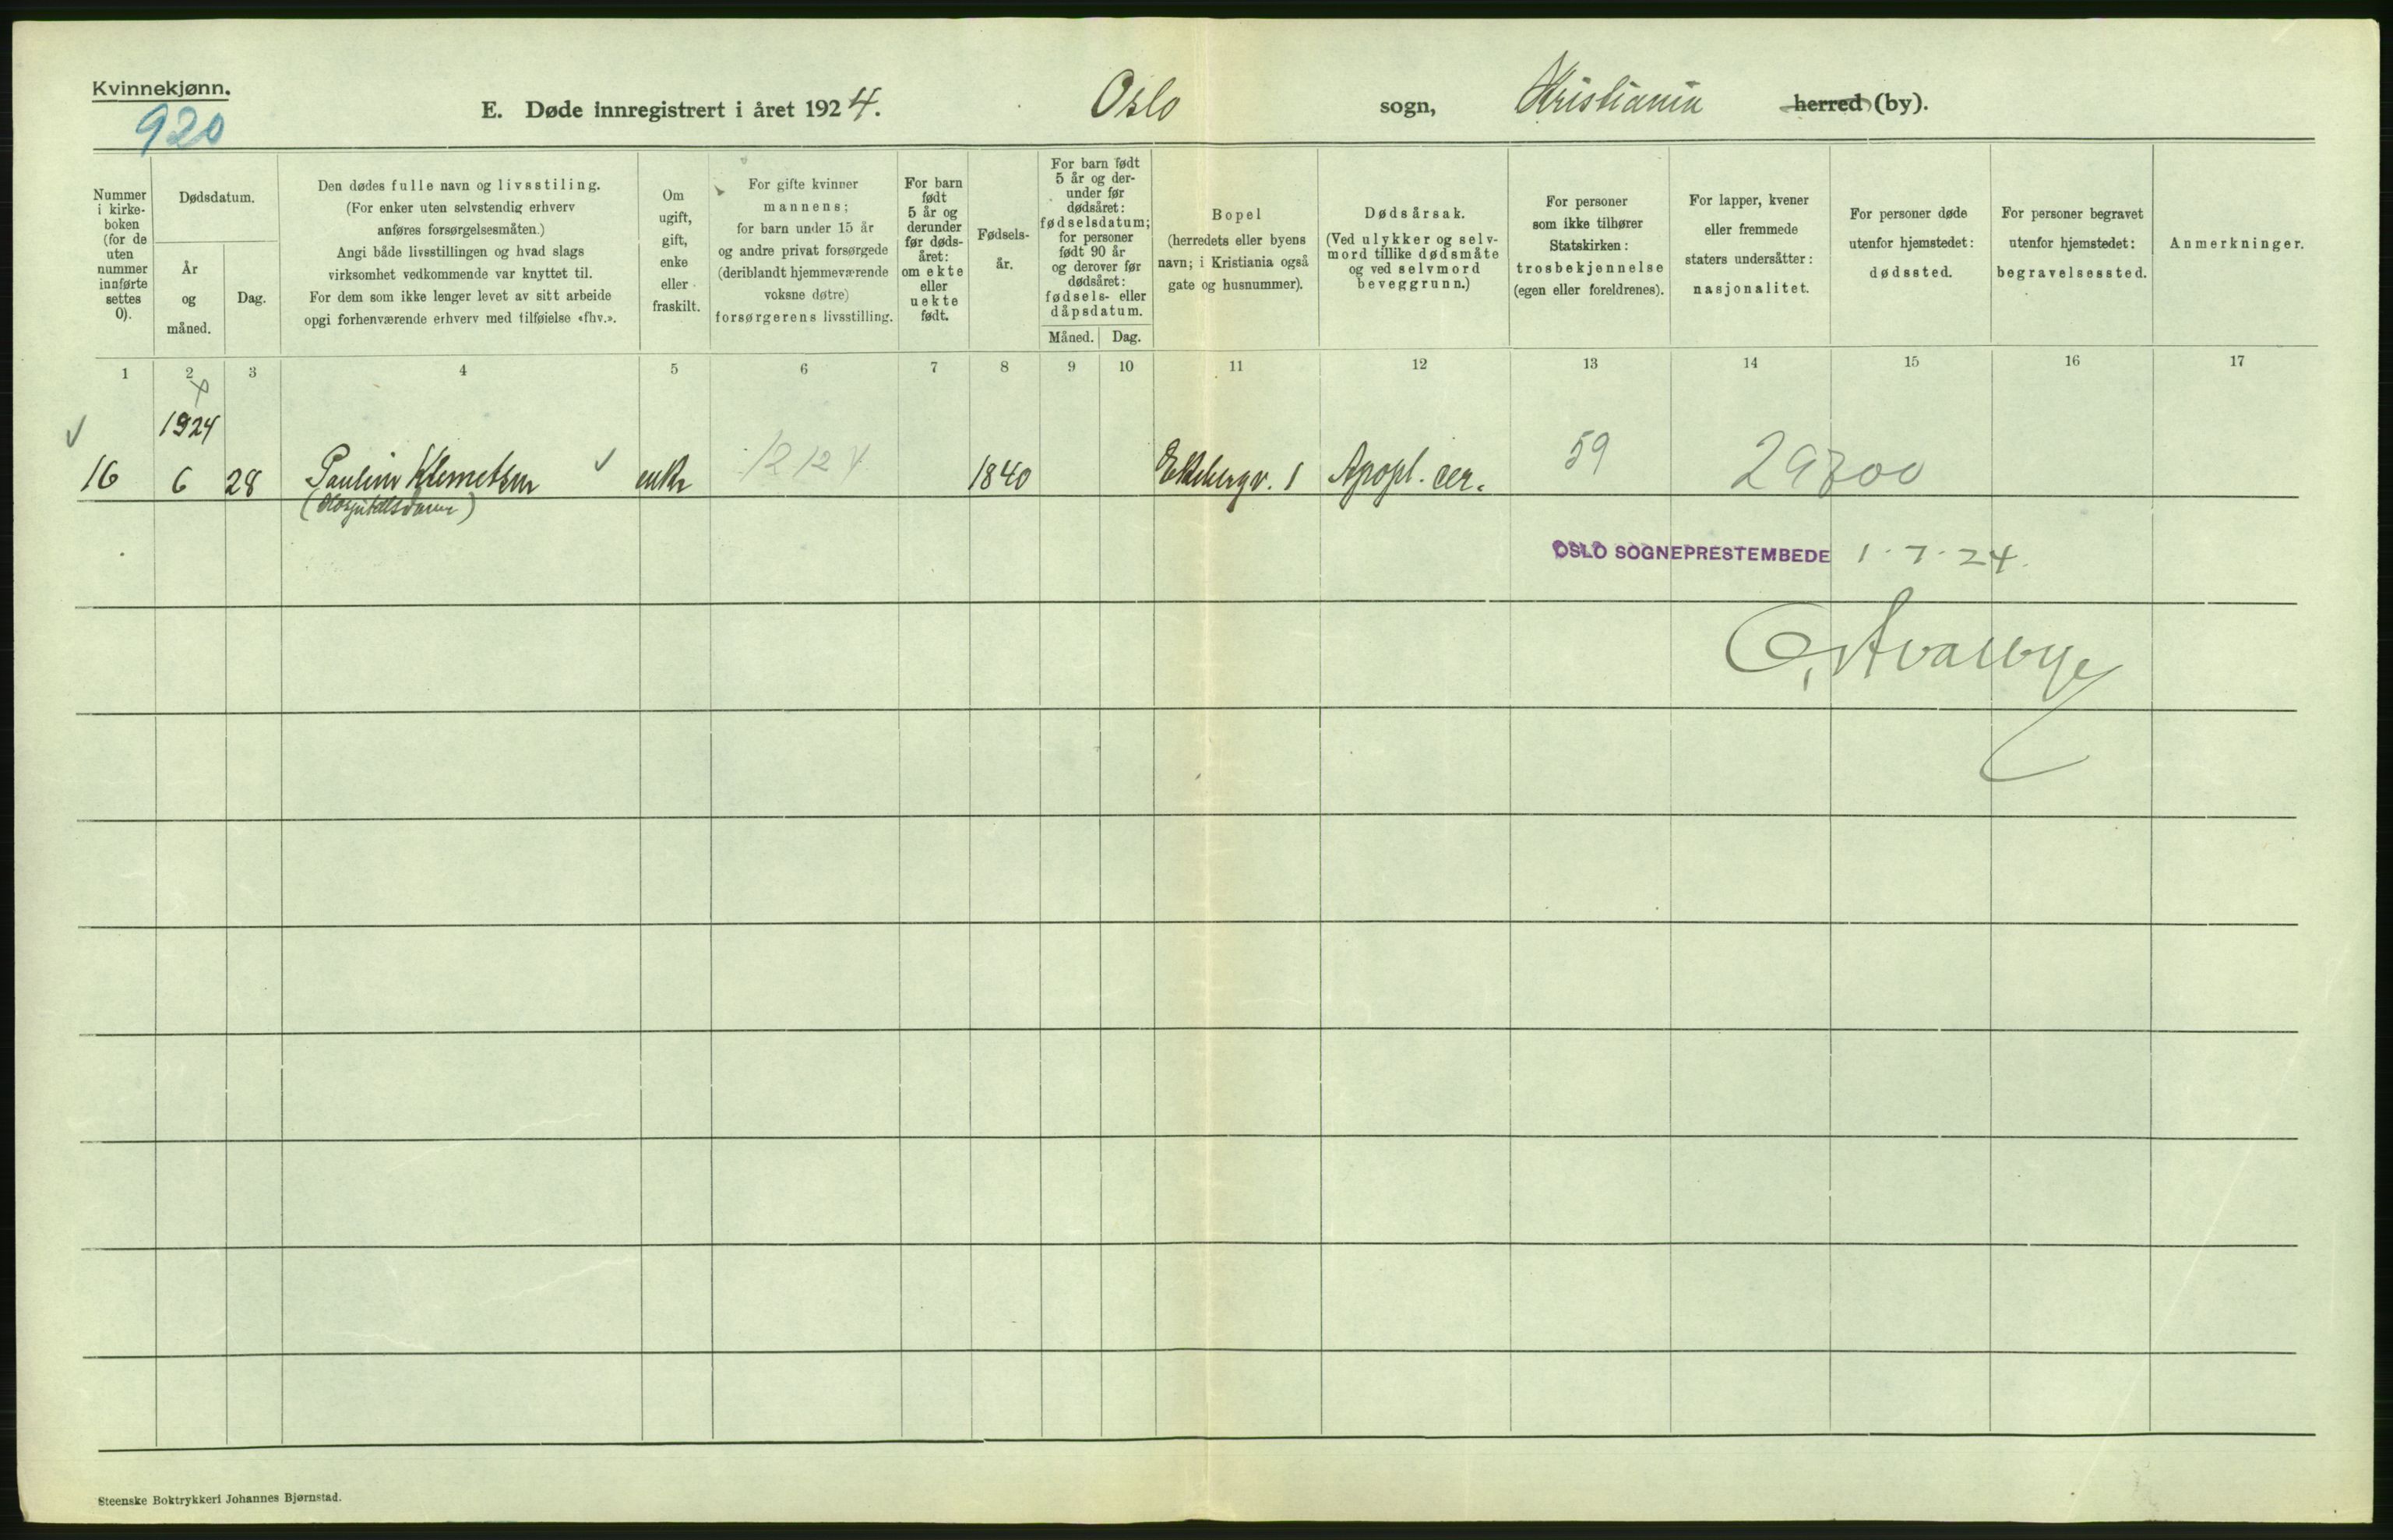 Kvinnekjønn.
920
E. Døde innregistrert i året 1924. Oslo sogn, Kristiania herred (by).
Nummer i kirke- boken (for de uten nummer innførte settes 0).
Dødsdatum.
År og måned.
Dag.
Den dødes fulle navn og livsstiling.
(For enker uten selvstendig erhverv
anføres forsørgelsesmåten.)
Angi både livsstillingen og hvad slags
virksomhet vedkommende var knyttet til.
For dem som ikke lenger levet av sitt arbeide
opgi forhenværende erhverv med tilføielse «fhv.».
Om
ugift,
gift,
enke
eller
fraskilt.
For gifte kvinner
mannens;
for barn under 15 år
og andre privat forsørgede
(deriblandt hjemmeværende
voksne døtre)
forsørgerens livsstilling.
For barn
født
5 år og
derunder
før døds-
året:
om ekte
eller
uekte
født.
Fødsels-
år.
For barn født
5 år og der-
under før
dødsåret:
fødselsdatum;
for personer
født 90 år
og derover før
dødsåret:
fødsels- eller
dåpsdatum.
Måned. Dag.
Bopel
(herredets eller byens
navn; i Kristiania også
gate og husnummer).
Dødsårsak.
(Ved ulykker og selv-
mord tillike dødsmåte
og ved selvmord
beveggrunn.)
For personer
som ikke tilhører
Statskirken:
trosbekjennelse
(egen eller foreldrenes).
For lapper, kvener
eller fremmede
staters undersåtter:
nasjonalitet.
For personer døde
utenfor hjemstedet:
dødssted.
For personer begravet
utenfor hjemstedet:
begravelsessted.
Anmerkninger.
1 2 3 4 5 6 7 8 9 10 11 12 13 14 15 16 17
1924
16 6 28 Pauline Klemetsen enke 1212 1840 Ekebergv. 1 Apopl. cer. 59 29800
OSLO SOGNEPRESTEMBEDE 1-7-24.
Steenske Boktrykkeri Johannes Bjørnstad.